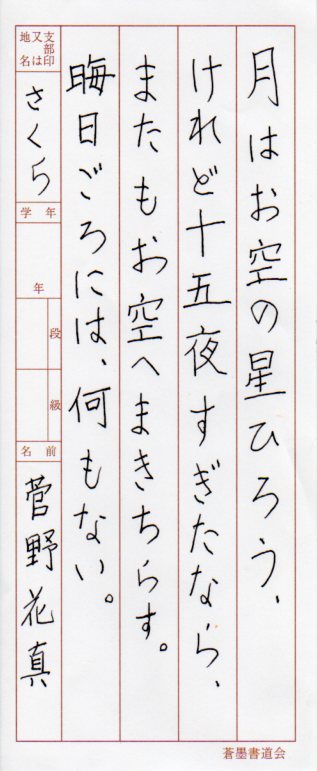 月はお空の星ひろう、
けれど十五夜すぎたなら、
またもお空へまきちらす。
晦日ごろには、何もない。
支部印
又は
地名
さくら
学年
年
段
級
名前
菅野花真
蒼墨書道会